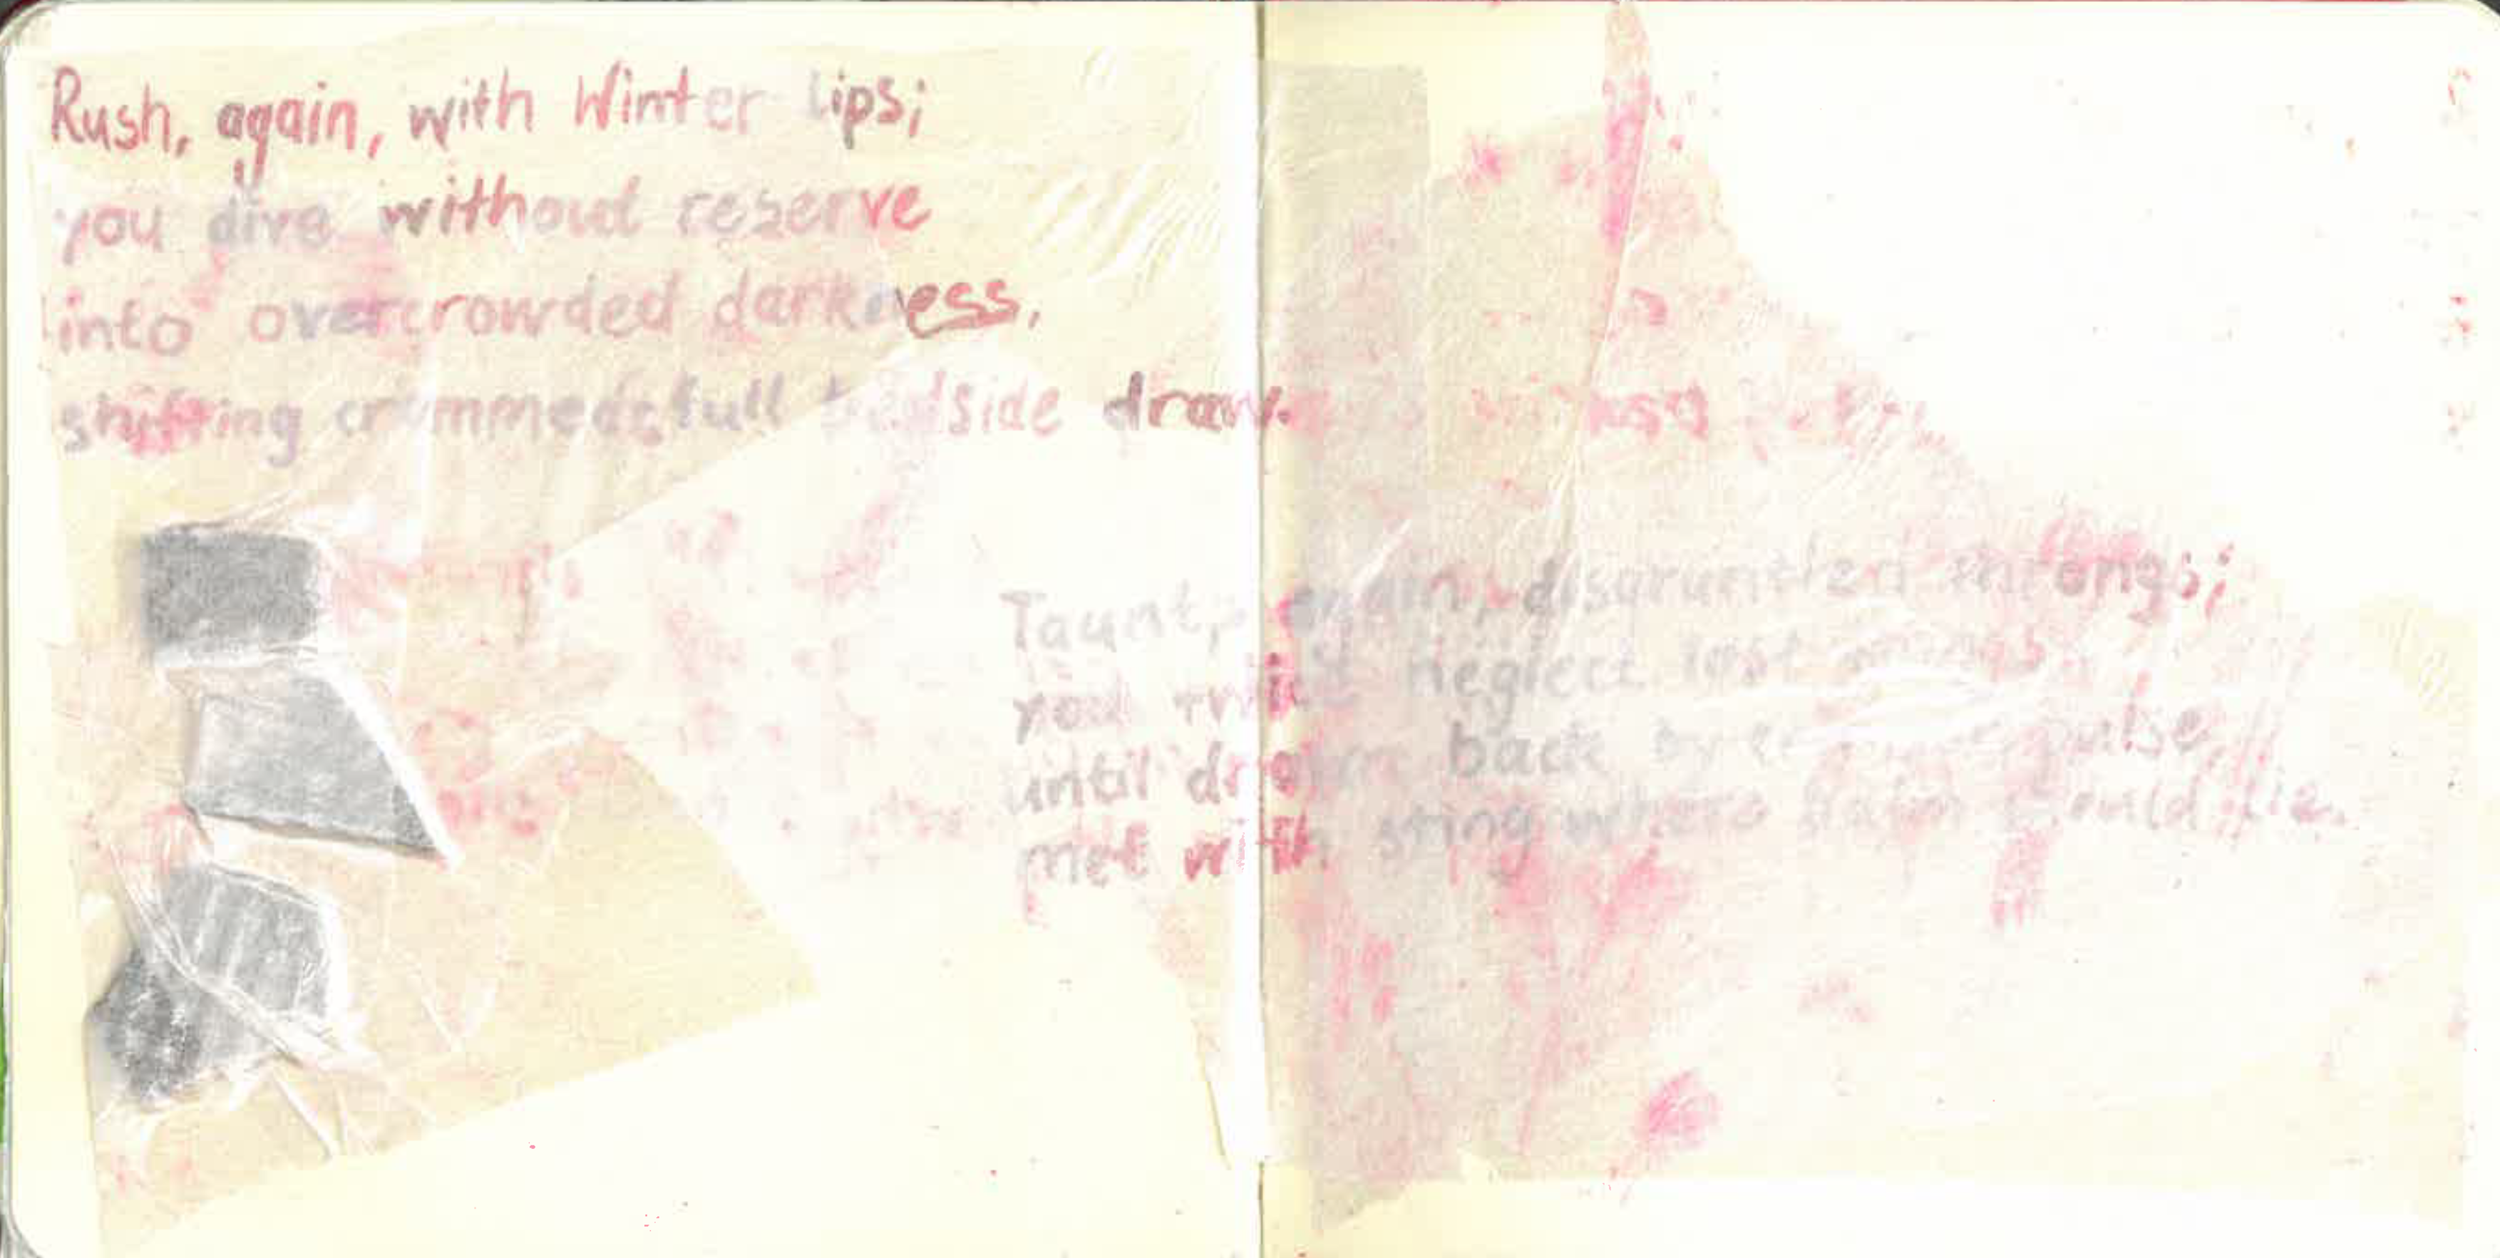 Rush, again, with Winter lips;
you dive without reserve
into overcrowded darkness,
shifting crammed full bedside
Taunt, again, disgruntled throngs;
you neglect lost
until drawn back by pulse,
met with sting where balm should lie.